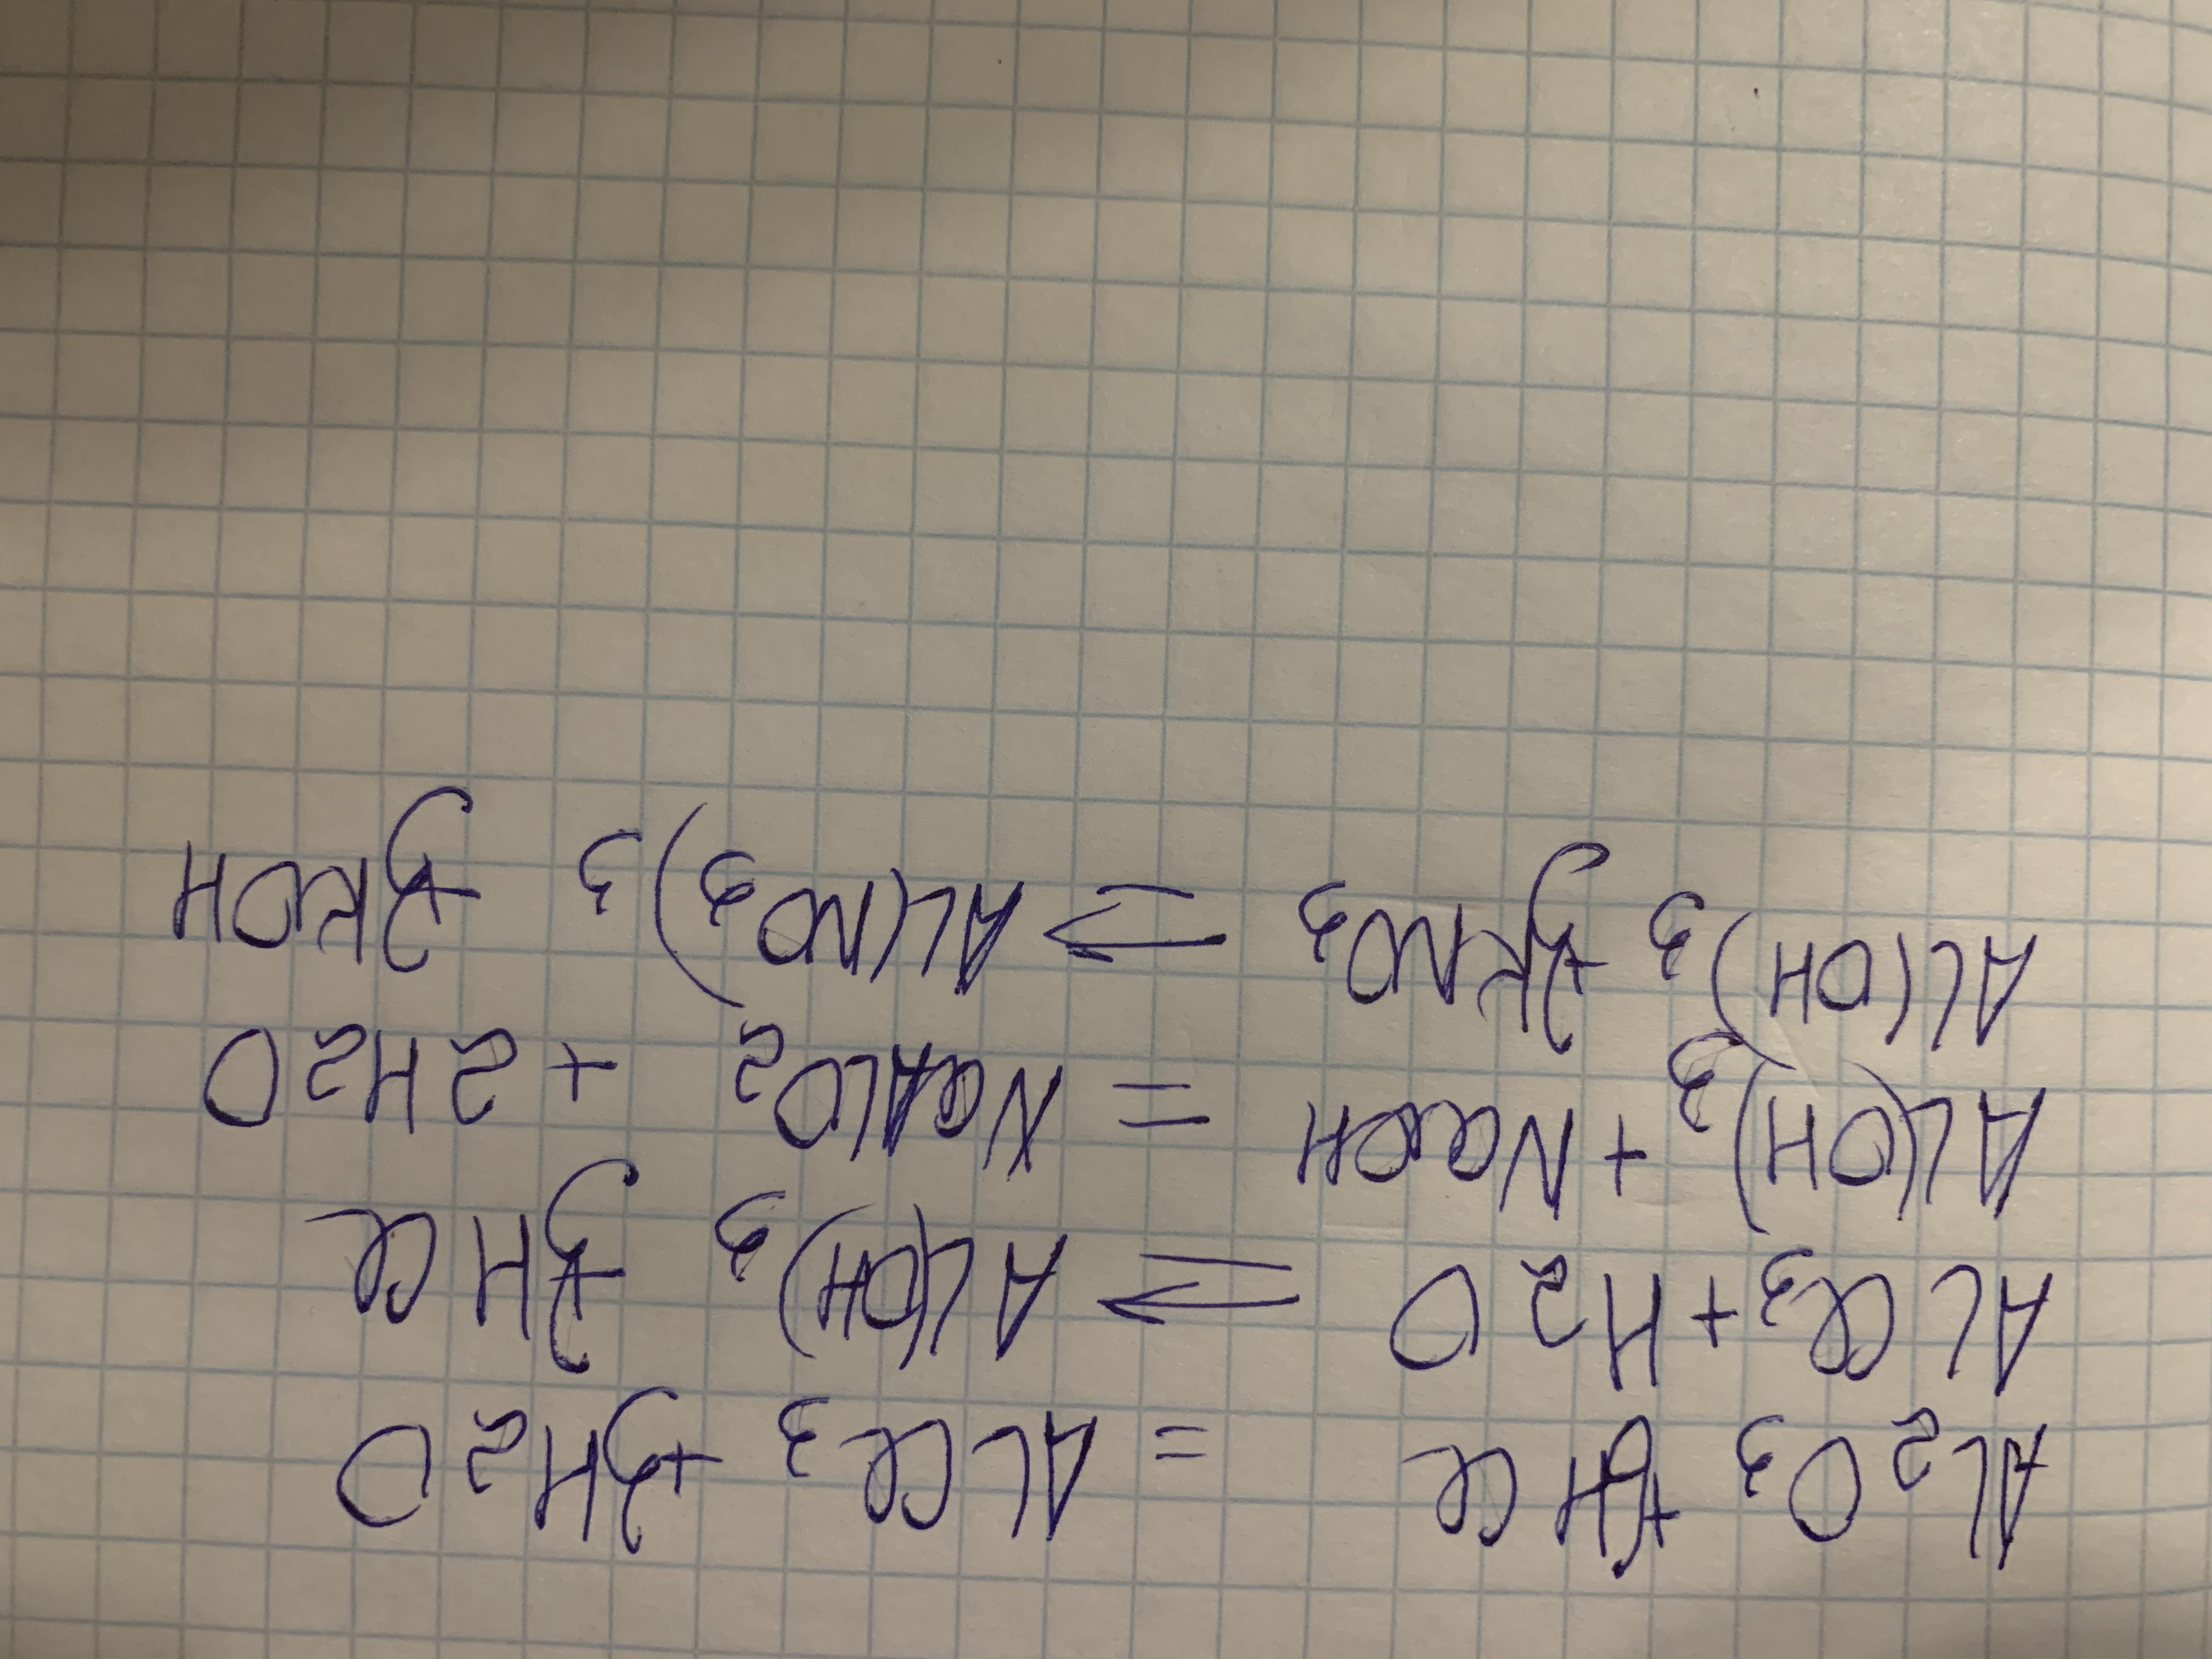 AL2O3 +6HCl = ALCl3 +3H2O
ALCl3+H2O ⇒ AL(OH)3 +3HCl
AL(OH)3 +NaOH = NaALO2 +2H2O
AL(OH)3 +3KNO3 ⇒ AL(NO3)3 +3KOH